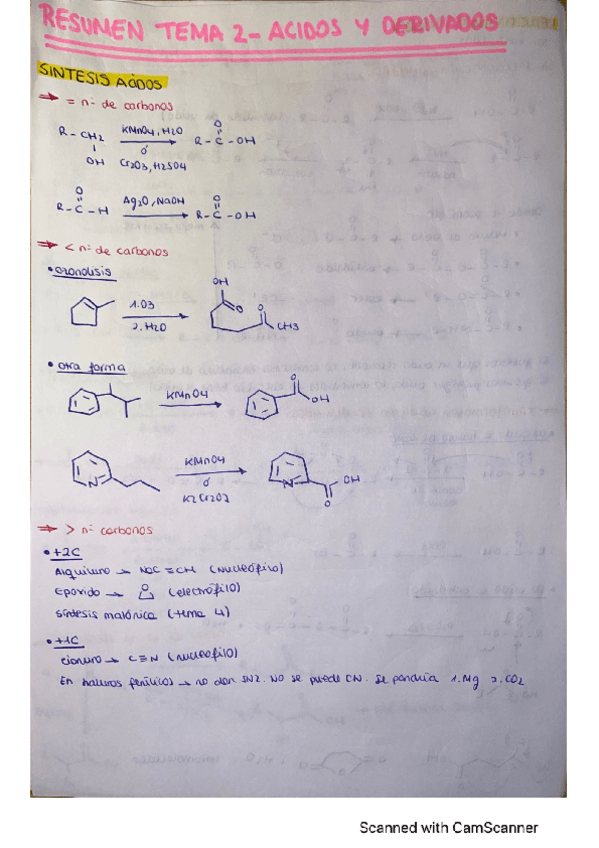 RESUMEN TEMA 2- ACIDOS Y DERIVADOS
SÍNTESIS ACIDOS
⇒ = nº de carbonos
R - CH2
OH
KMnO4, H2O
ó
Cr2O3, H2SO4
O
R - C - OH
O
R - C - H
Ag2O, NaOH
O
R - C - OH
⇒ < nº de carbonos
• ozonolisis
1. O3
2. H2O
OH
O
O
CH3
• otra forma
KMnO4
O
OH
N
KMnO4
ó
K2Cr2O7
N
OH
O
⇒ > nº carbonos
• +2C
Alquiluro → NaC ≡ CH (nucleófilo)
Epoxido → O (electrófilo)
Síntesis malónica (tema 4)
• +1C
cianuro → C≡N (nucleofilo)
En haluros fenílicos → no dan SN2. NO se puede CN. Se pondría 1. Mg 2. CO2
Scanned with CamScanner